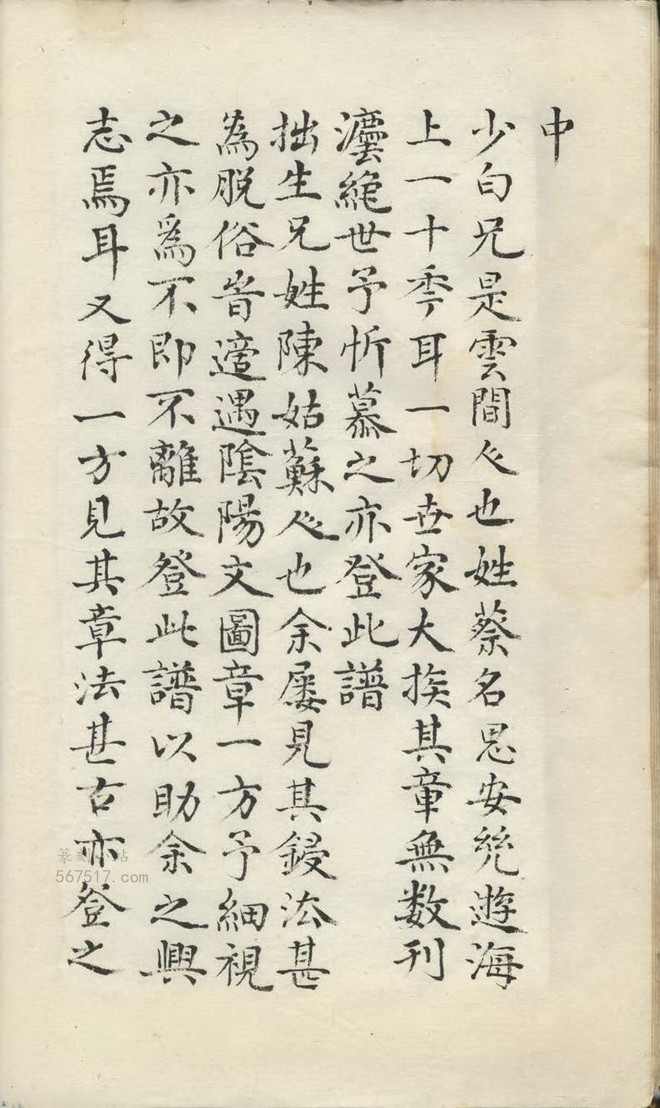 中
少白兄是雲間人也姓蔡名思安然遊海
上一十季耳一切世家大族其章無数刊
灋絶世予忻慕之亦登此譜
拙生兄姓陳姑蘇人也余屡見其鋟法甚
為脱俗昔適遇陰陽文圖章一方予細視
之亦為不即不離故登此譜以助余之興
志焉耳又得一方見其章法甚古亦登之
篆刻小站
567517.com